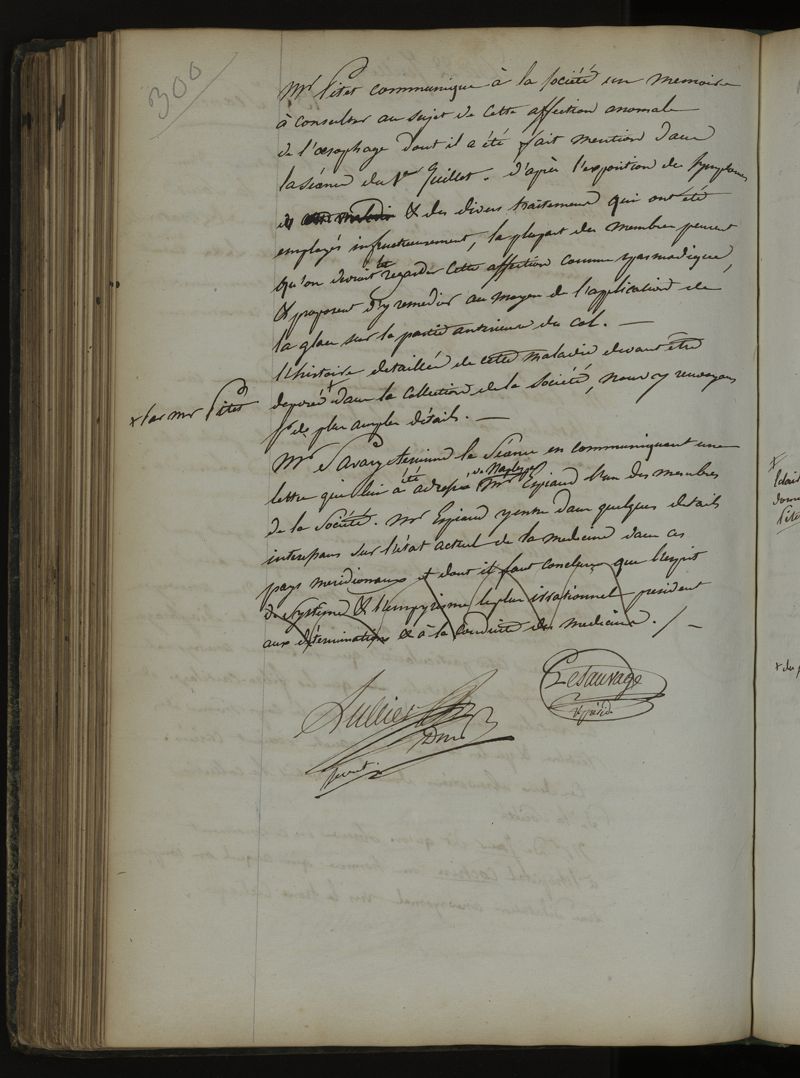 300
Mr Pitet communique à la société un memoire
à consulter au sujet de cette affection anomale
de l'œsophage dont il a été fait mention dans
la séance du 1er Juillet. D'après l'exposition des symptomes
& des divers traitemens qui ont été
employés infructueusement, la plupart des membres pensent
qu'on devrait regarder cette affection comme spasmodique,
& proposent d'y remedier au moyen de l'application de
la glace sur la partie anterieure du col. —
l'histoire detaillée de cette maladie devant être
deposée + dans la collection de la société, nous y renvoyons
+ par mr Pitet
pr de plus amples détails. —
Mr Savary termine la Séance en communiquant une
lettre qui lui a été adressée de Naples par Mr Espiaud l'un des membres
de la Société. Mr Espiaud y entre dans quelques details
interessans sur l'état actuel de la medecine dans ces
pays meridionaux et dont il faut conclure que l'esprit
de système & l'empyrisme le plus irrationnel president
aux determinations & à la conduite des medecins. / —
Lullier
DM
Lesauvage